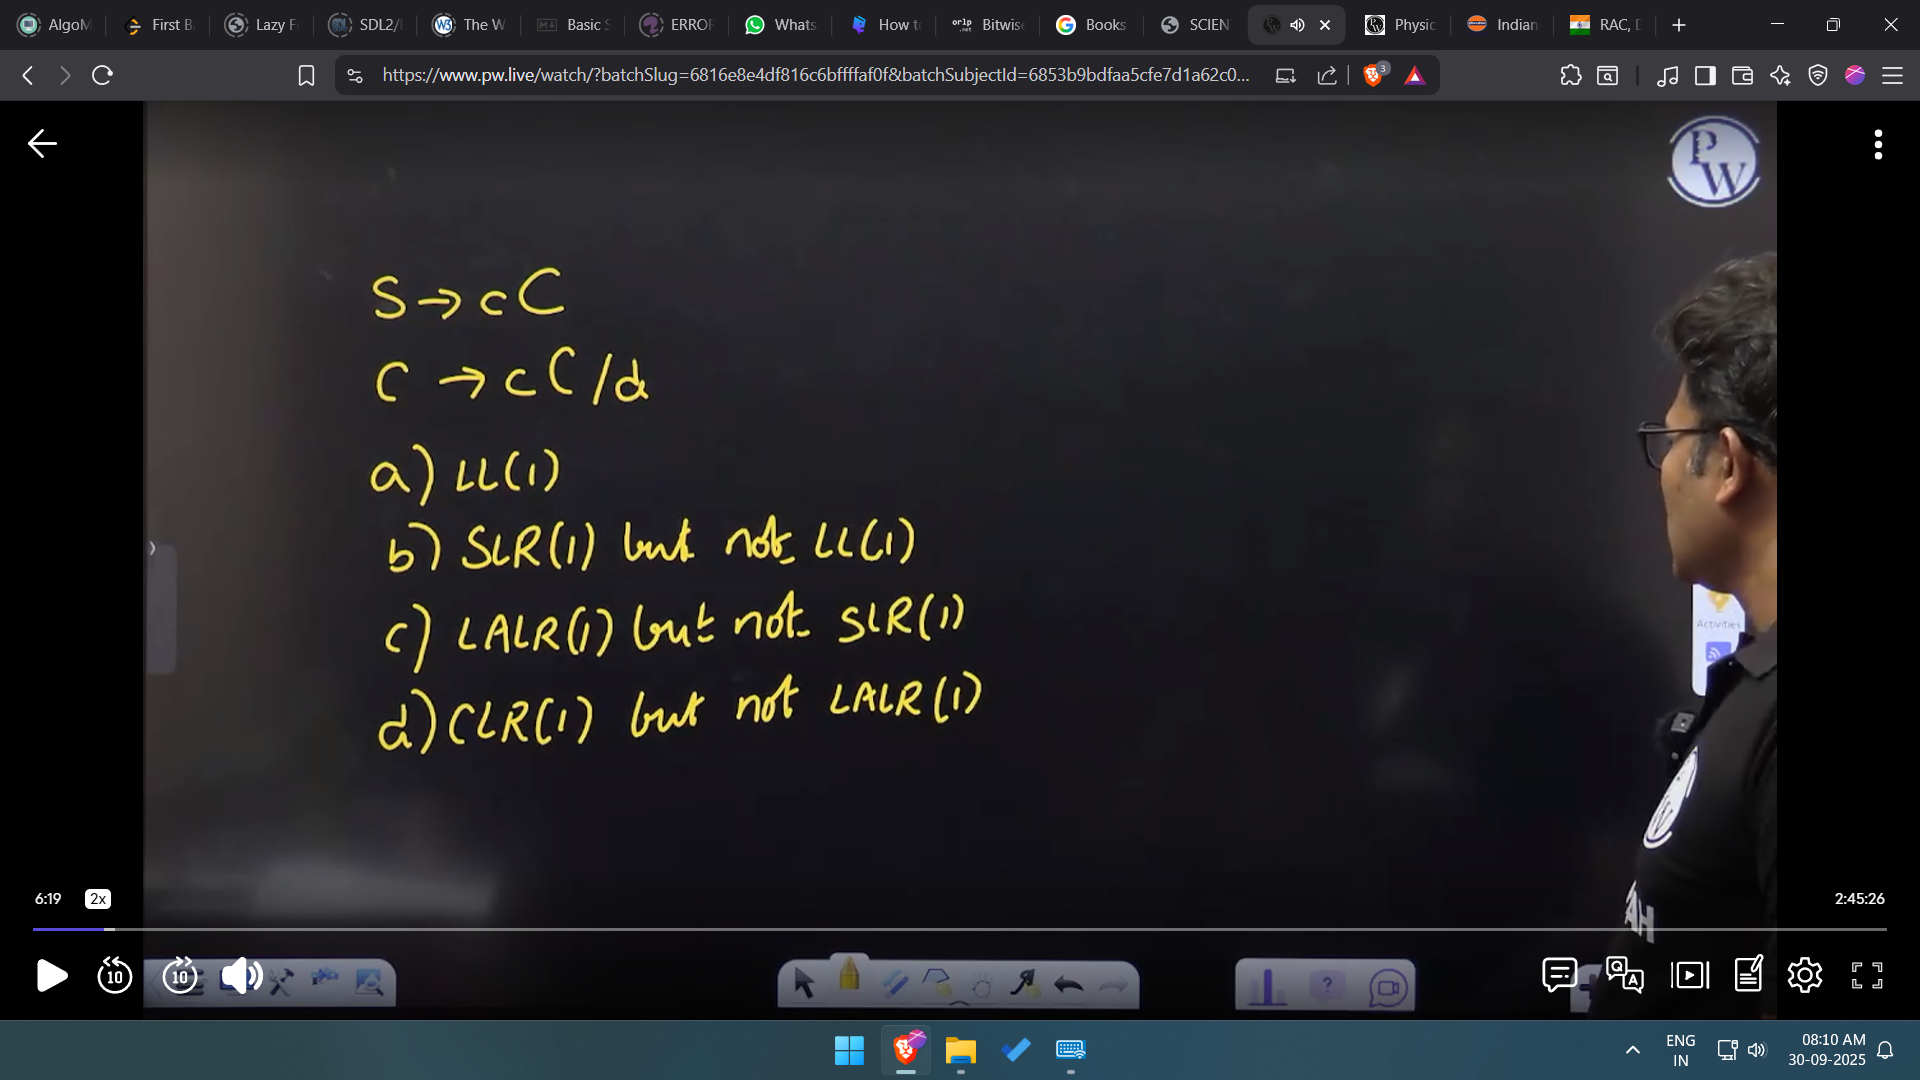 AlgoM
First B
Lazy F
SDL2/
The W
Basic S
ERROR
Whats
How t
Bitwise
Books
SCIEN
Physic
Indian
RAC, D
https://www.pw.live/watch/?batchSlug=6816e8e4df816c6bffffaf0f&batchSubjectId=6853b9bdfaa5cfe7d1a62c0...
3
PW
S → cC
C → cC/d
a) LL(1)
b) SLR(1) but not LL(1)
c) LALR(1) but not SLR(1)
Activities
d) CLR(1) but not LALR(1)
AH
6:19
2x
2:45:26
10
10
ENG
IN
08:10 AM
30-09-2025